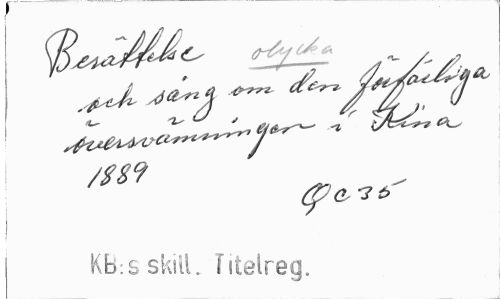 Berättelse olycka
och sång om den förfärliga
översvämningen i Kina
1889
Qc35
KB:s skill. Titelreg.